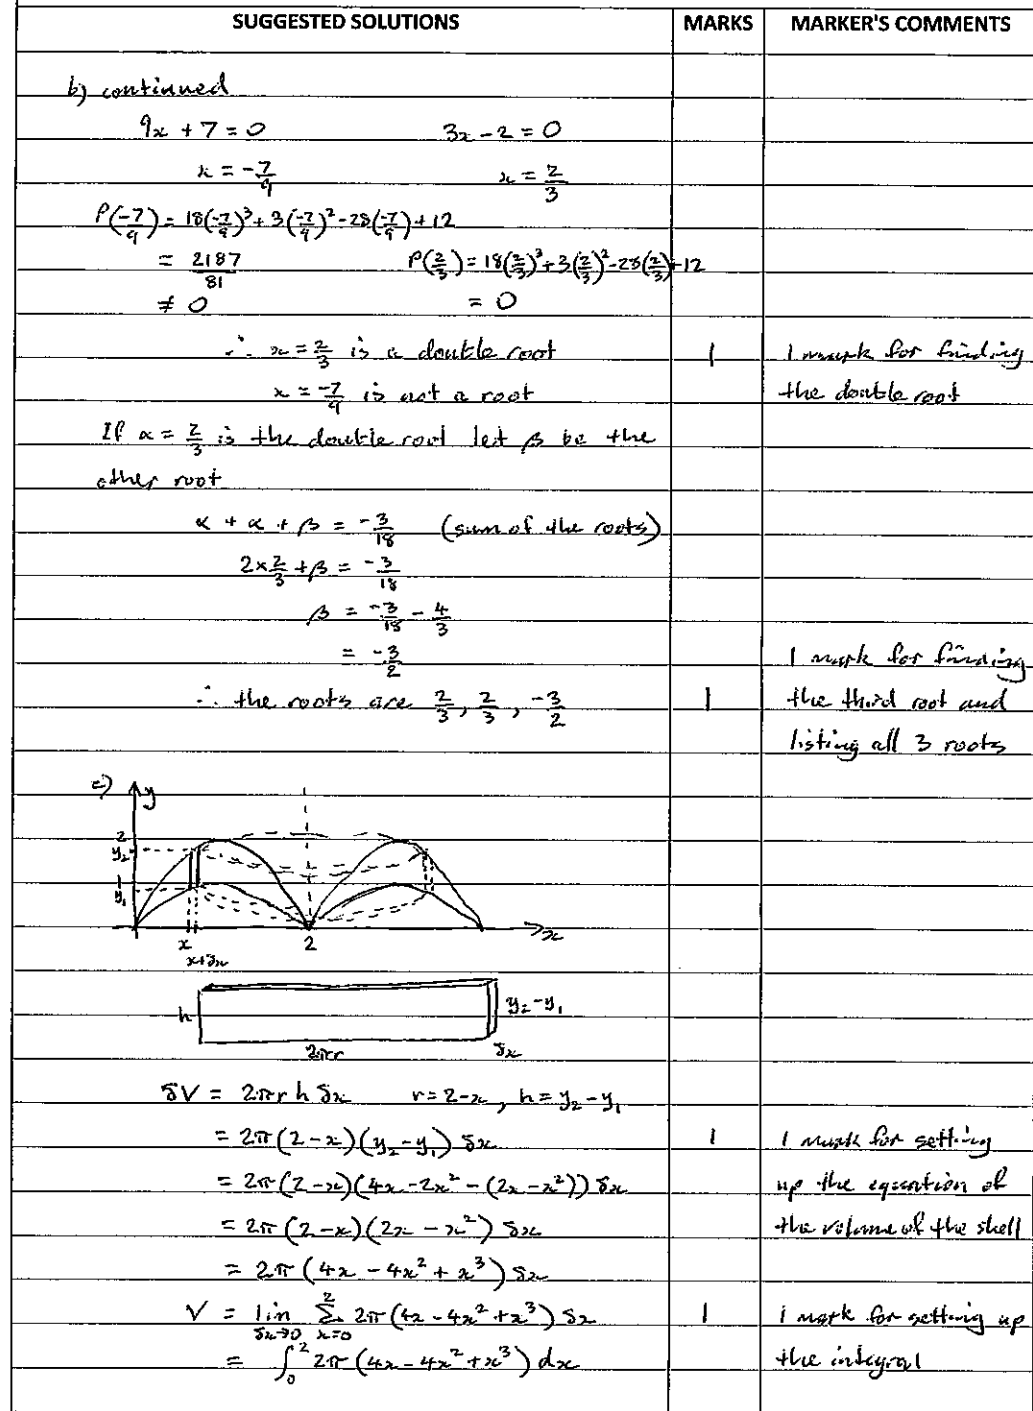 SUGGESTED SOLUTIONS MARKS MARKER'S COMMENTS
b) continued
9x + 7 = 0 3x - 2 = 0
x = -7/9 x = 2/3
P(-7/9) = 18(-7/9)³ + 3(-7/9)² - 28(-7/9) + 12
= 2187/81 P(2/3) = 18(2/3)³ + 3(2/3)² - 28(2/3) + 12
≠ 0 = 0
∴ x = 2/3 is a double root 1 1 mark for finding
x = -7/9 is not a root the double root
If α = 2/3 is the double root let β be the
other root
α + α + β = -3/18 (sum of the roots)
2×2/3 + β = -3/18
β = -3/18 - 4/3
= -3/2 1 mark for finding
∴ the roots are 2/3, 2/3, -3/2 1 the third root and
listing all 3 roots
c) y
2
y₂
1
y₁
x 2 x
x+δx
h y₂-y₁
2πr δx
δV = 2πr h δx r = 2-x, h = y₂ - y₁
= 2π(2-x)(y₂-y₁) δx 1 1 mark for setting
= 2π(2-x)(4x-2x² - (2x-x²)) δx up the equation of
= 2π(2-x)(2x-x²) δx the volume of the shell
= 2π(4x - 4x² + x³) δx
V = lim δx→0 Σ x=0 2 2π(4x - 4x² + x³) δx 1 1 mark for setting up
= ∫₀² 2π(4x - 4x² + x³) dx the integral